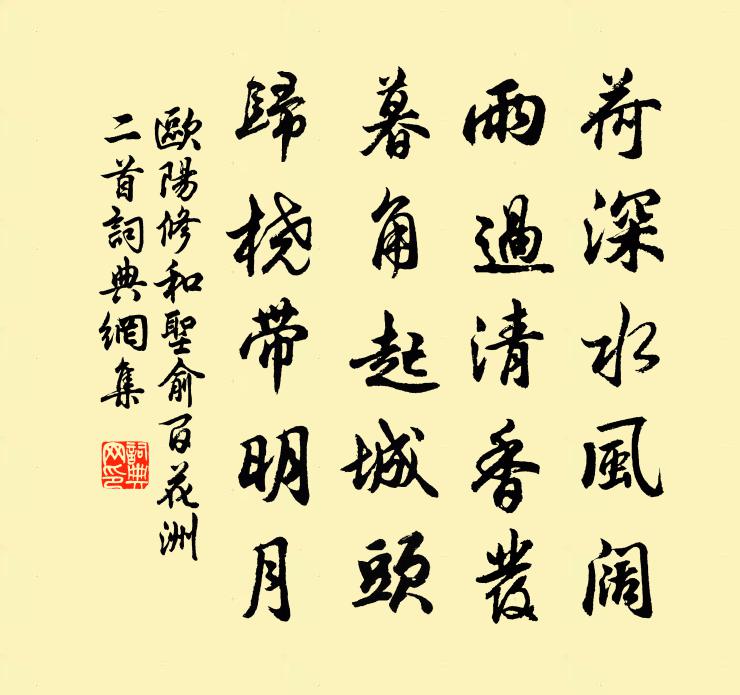 荷深水風阔
雨過清香發
暮角起城頭
歸桡帶明月
歐陽修和聖俞百花洲
二首詞典網集
詞典
网印